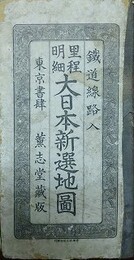 鐵道線路入
里程
明細
大日本新選地圖
東京書肆　薫志堂藏版